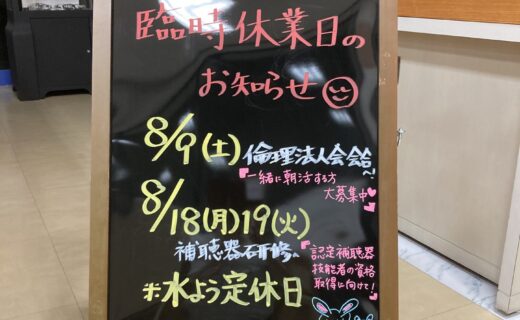 臨時休業日の
お知らせ
8/9(土)倫理法人会
一緒に朝活する方
大募集中
8/18(月)19(火)
補聴器研修
認定補聴器
技能者の資格
取得に向けて!
※水よう定休日